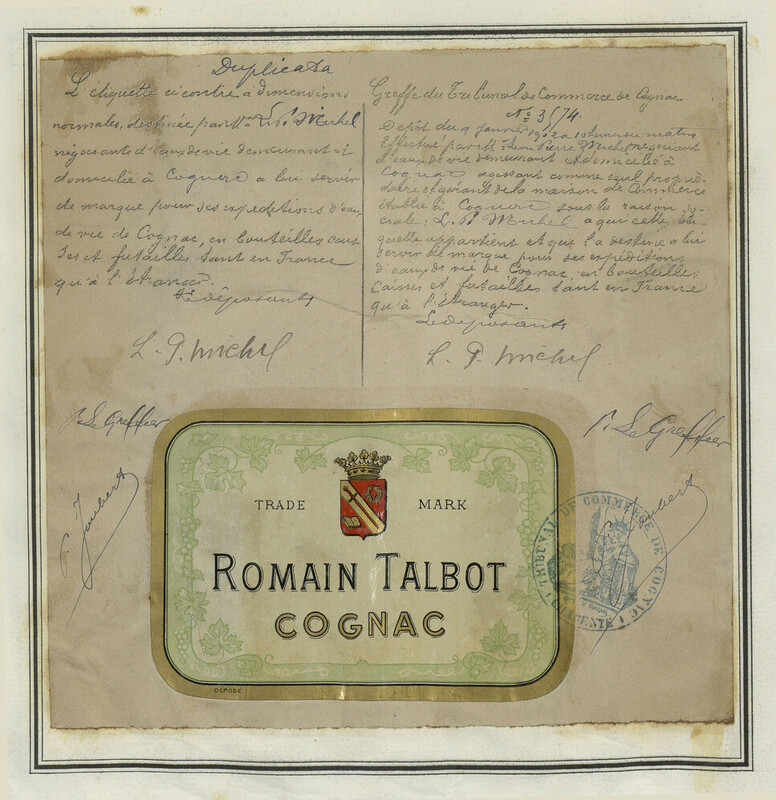 Duplicata
L'étiquette ci contre, à dimensions
normales, destinée par Mr L. P. Michel
négociant d'eaux de vie demeurant et
domicilié à Cognac a lui servir
de marque pour ses expéditions d'eaux
de vie de Cognac, en bouteilles cais
ses et futailles tant en France
qu'à l'étranger.
Le déposants
L. P. Michel
Greffe du Tribunal de Commerce de Cognac
No 3574.
Dépôt du 9 Janvier à heures du matin
Effectué par M Pierre Michel négociant
d'eaux de vie demeurant et domicilié à
Cognac agissant comme seul proprié-
taire et gérant de la maison de Commerce
établie à Cognac sous la raison so-
ciale: L. P. Michel a qui cette éti-
quette appartient et qui l'a destine a lui
servir de marque pour ses expéditions
d'eaux de vie de Cognac, en bouteilles
Caisses et futailles tant en France
qu'à l'étranger.
Le déposants
L. P. Michel
P. Le Greffier
P. Le Greffier
Joubert
Joubert
TRADE MARK
ROMAIN TALBOT
COGNAC
DÉPOSÉ
TRIBUNAL DE COMMERCE DE COGNAC
(CHARENTE)